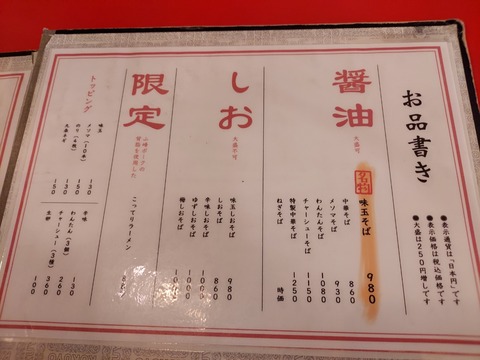 お品書き
●表示通貨は「日本円」です
●表示価格は税込価格です
●大盛は250円増しです
醤油
大盛可
名物 味玉そば 980
中華そば 860
メンマそば 930
わんたんそば 1080
チャーシューそば 1150
特製中華そば 1250
ねぎそば 時価
しお
大盛不可
味玉しおそば 980
しおそば 860
辛味しおそば
ゆずしおそば
梅しおそば
限定
山崎ポークの
背脂を使用した
こってりラーメン
トッピング
味玉 130
メンマ(10本) 150
のり(4枚) 130
大盛ネギ 150
辛味
わんたん(3個)
チャーシュー(3種)
生卵 100